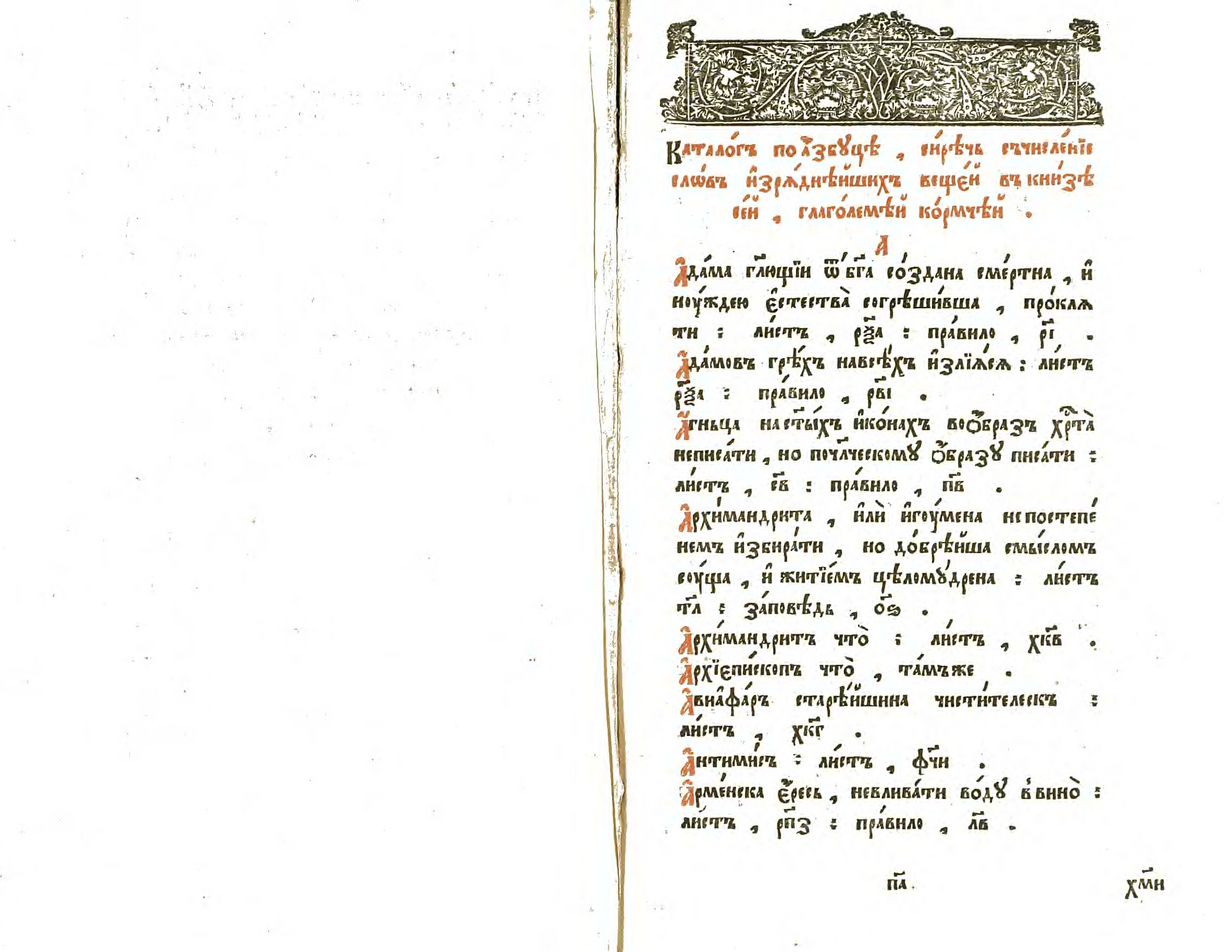 Каталогъ по а҆́збꙋцѣ , си́рѣчь съчисле́нїе
слѡ́въ и҆зрѧ́днѣйшихъ веще́й въ кни́зѣ
се́й , глаго́лемѣй ко́рмчѣй .
А
А҆да́ма гл҃ющїи ѿ бг҃а со́здана сме́ртна , и҆
ноу́ждею є҆стества̀ согрѣши́вша , про́клѧ
ти : ли́стъ , рѯ҃а : пра́вило , р҃і .
А҆да́мовъ грѣ́хъ на всѣ́хъ и҆злїѧ́сѧ : ли́стъ
рѯ҃а : пра́вило , рв҃і .
А҆́гньца на ст҃ы́хъ и҆ко́нахъ во ѻ҆́бразъ хрⷭ҇та̀
не писа́ти , но по чл҃ческомꙋ ѻ҆́бразꙋ писа́ти :
ли́стъ , с҃в : пра́вило , п҃в .
А҆рхїмандри́та , и҆лѝ и҆гоу́мена не по степе́
немъ и҆збира́ти , но до́брѣйша смы́сломъ
соу́ща , и҆ житїе́мъ цѣломꙋ́дрена : ли́стъ
т҃л : за́повѣдь , о҃ѕ .
А҆рхїмандри́тъ что̀ : ли́стъ , хк҃в .
А҆рхїєпи́скопъ что̀ , та́мъже .
А҆вїа҆ѳа́ръ старѣ́йшина чисти́телескъ :
ли́стъ , хк҃г .
А҆нтими́съ : ли́стъ , фч҃и .
А҆рме́нска є҆́ресь , не влива́ти во́дꙋ в вино̀ :
ли́стъ , рп҃з : пра́вило , л҃в .
п҃а .
хм҃и